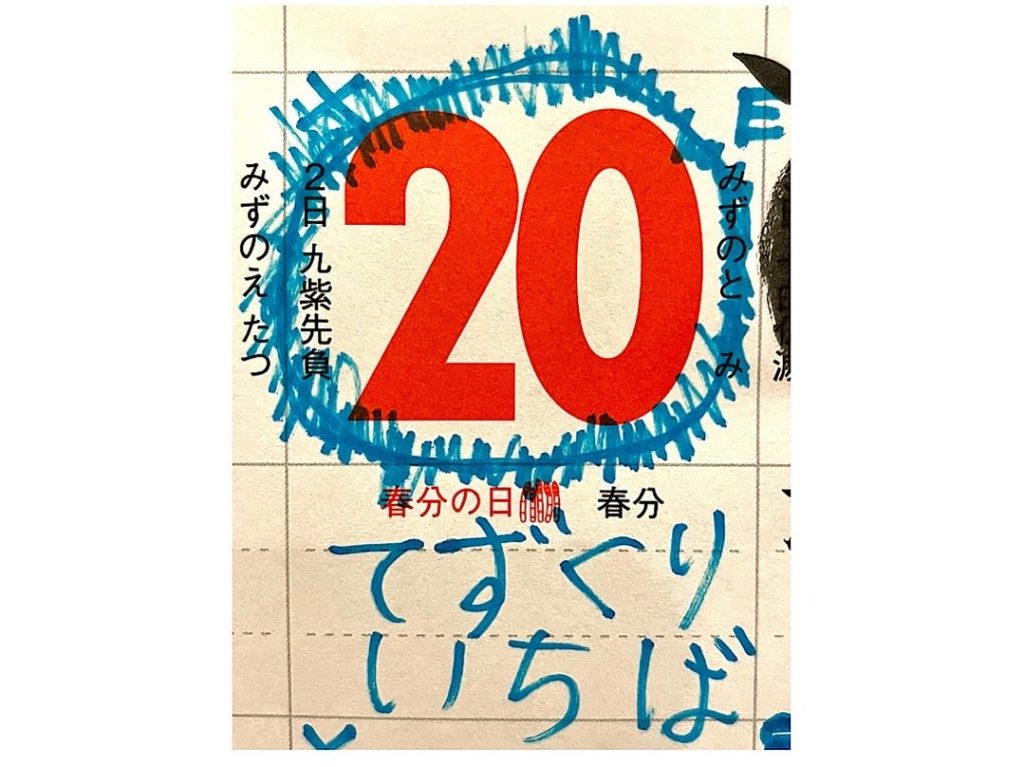 みずのと み
20
2日 九紫先負
みずのえ たつ
春分の日 春分
てずくり
いちば